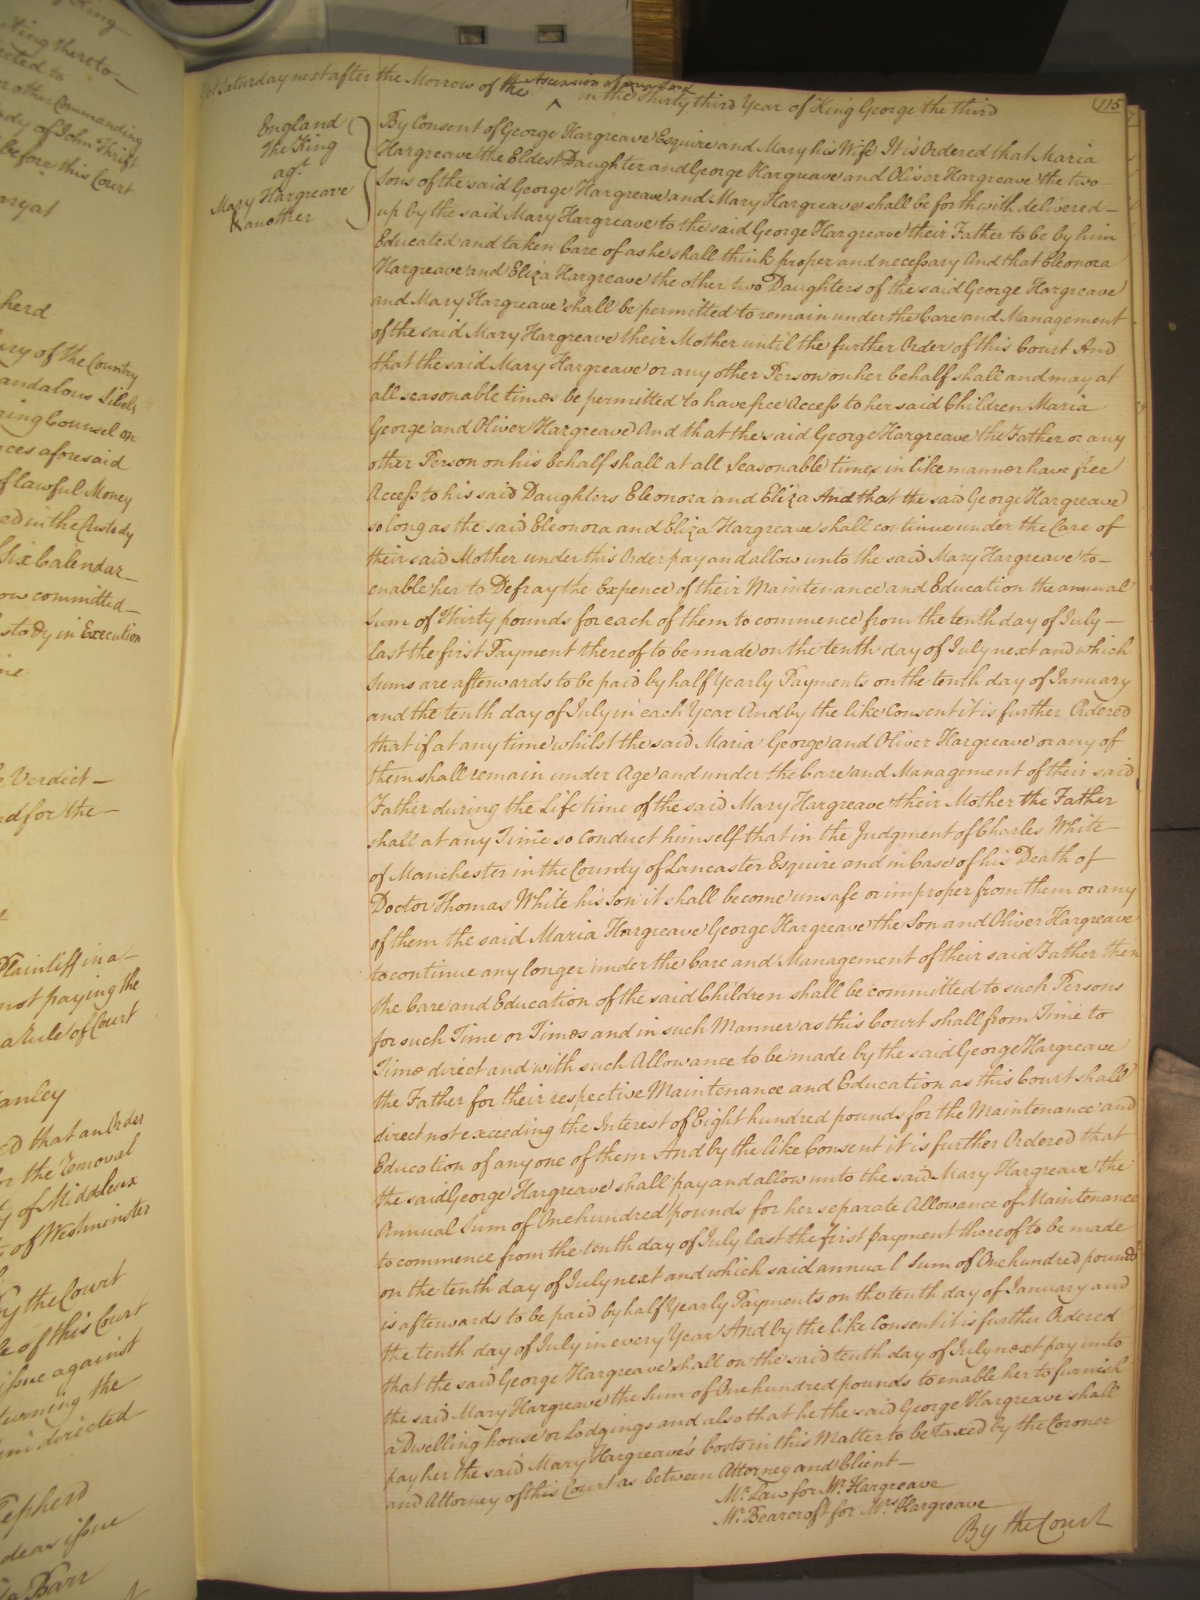 King
ting thereto
ected to
or other Commanding
dy of John Thrift
before this Court
aryat
herd
ury of the Country
andalous Libels
ging Counsel on
ces aforesaid
of lawful Money
ed in the Custody
Six Calendar
ow committed
stody in Execution
ine
Verdict
d for the
Plaintiff in a
not paying the
a Rule of Court
anley
ed that an Order
or the Removal
y of Middlesex
of Westminster
By the Court
le of this Court
issue against
turning the
directed
epherd
deas issue
Barr
Of Saturday next after the Morrow of the Ascension of our Lord in the Thirty third Year of King George the third
115
England
The King
agt
Mary Hargreave
& another
By Consent of George Hargreave Esquire and Mary his Wife It is Ordered that Maria
Hargreave the Eldest Daughter and George Hargreave and Oliver Hargreave the two
Sons of the said George Hargreave and Mary Hargreave shall be forthwith delivered
up by the said Mary Hargreave to the said George Hargreave their Father to be by him
Educated and taken Care of as he shall think proper and necessary And that Eleonora
Hargreave and Eliza Hargreave the other two Daughters of the said George Hargreave
and Mary Hargreave shall be permitted to remain under the Care and Management
of the said Mary Hargreave their Mother until the further Order of this Court And
that the said Mary Hargreave or any other Person on her behalf shall and may at
all seasonable times be permitted to have free Access to her said Children Maria
George and Oliver Hargreave And that the said George Hargreave the Father or any
other Person on his behalf shall at all Seasonable times in like manner have free
Access to his said Daughters Eleonora and Eliza And that the said George Hargreave
so long as the said Eleonora and Eliza Hargreave shall continue under the Care of
their said Mother under this Order pay and allow unto the said Mary Hargreave to
enable her to Defray the Expence of their Maintenance and Education the annual
Sum of Thirty pounds for each of them to commence from the tenth day of July
last the first Payment thereof to be made on the tenth day of July next and which
Sums are afterwards to be paid by half Yearly Payments on the tenth day of January
and the tenth day of July in each Year And by the like Consent it is further Ordered
that if at any time whilst the said Maria George and Oliver Hargreave or any of
them shall remain under Age and under the Care and Management of their said
Father during the Life time of the said Mary Hargreave their Mother the Father
shall at any Time so conduct himself that in the Judgment of Charles White
of Manchester in the County of Lancaster Esquire and in Case of his Death of
Doctor Thomas White his Son it shall become unsafe or improper from them or any
of them the said Maria Hargreave George Hargreave the Son and Oliver Hargreave
to continue any longer under the Care and Management of their said Father then
the Care and Education of the said Children shall be committed to such Persons
for such Time or Times and in such Manner as this Court shall from Time to
Time direct and with such Allowance to be made by the said George Hargreave
the Father for their respective Maintenance and Education as this Court shall
direct not exceeding the Interest of Eight hundred pounds for the Maintenance and
Education of any one of them And by the like Consent it is further Ordered that
the said George Hargreave shall pay and allow unto the said Mary Hargreave the
Annual Sum of One hundred pounds for her separate Allowance of Maintenance
to commence from the tenth day of July last the first payment thereof to be made
on the tenth day of July next and which said annual Sum of One hundred pounds
is afterwards to be paid by half Yearly Payments on the tenth day of January and
the tenth day of July in every Year And by the like Consent it is further Ordered
that the said George Hargreave shall on the said tenth day of July next pay unto
the said Mary Hargreave the Sum of One hundred pounds to enable her to furnish
a Dwelling house or Lodgings and also that he the said George Hargreave shall
pay her the said Mary Hargreave's Costs in this Matter to be taxed by the Coroner
and Attorney of this Court as between Attorney and Client
Mr. Law for Mr. Hargreave
Mr. Bearcroft for Mrs. Hargreave
By the Court